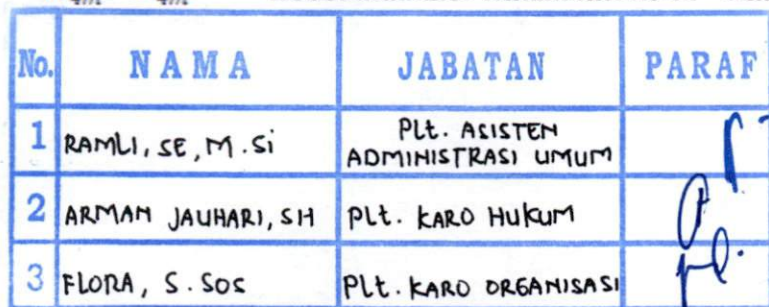 No. NAMA JABATAN PARAF
1 RAMLI, SE, M.Si Plt. ASISTEN
ADMINISTRASI UMUM
2 ARMAN JAUHARI, SH Plt. KARO HUKUM
3 FLORA, S.Sos Plt. KARO ORGANISASI